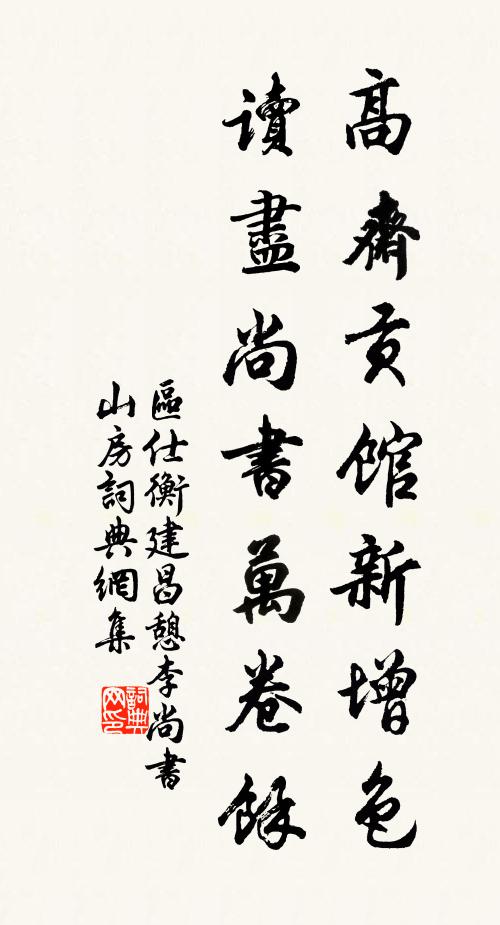 高齋貢館新增色
讀盡尚書萬卷餘
區仕衡建昌憩李尚書
山房詞典網集
詞典网印